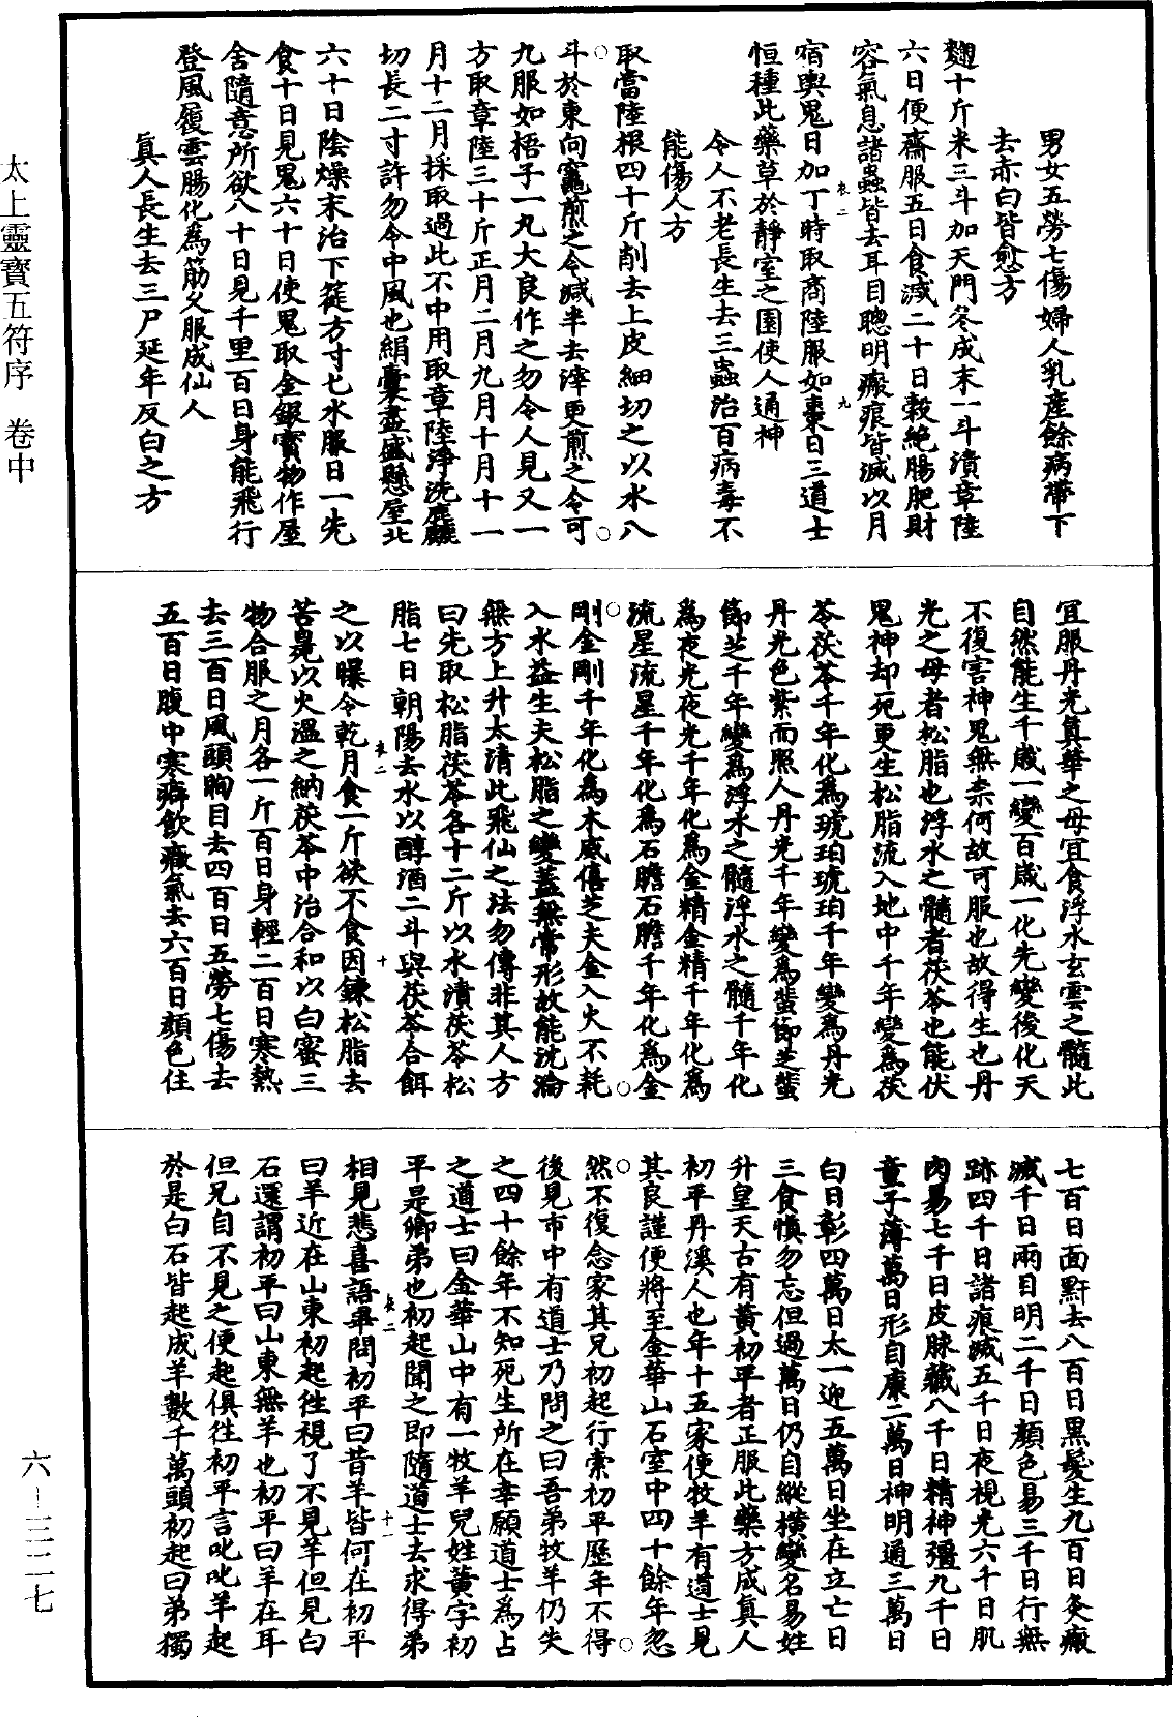 太上靈寶五符序　卷中
六—三二七
男女五勞七傷婦人乳產餘病滯下
去赤白皆愈方
麴十斤米三斗加天門冬成末一斗漬章陸
六日便齋服五日食減二十日穀絕腸肥財
容氣息諸蟲皆去耳目聰明瘢痕皆滅以月
宿輿鬼日加丁時取商陸服如棗日三道士
恒種此藥草於靜室之園使人通神
令人不老長生去三蟲治百病毒不
能傷人方
取當陸根四十斤削去上皮細切之以水八
斗於東向竈煎之令減半去滓更煎之令可
九服如梧子一丸大良作之勿令人見又一
方取章陸三十斤正月二月九月十月十一
月十二月採取過此不中用取章陸淨洗麁麤
切長二寸許勿令中風也絹囊盡盛懸屋北
六十日陰燥末治下篵方寸匕水服日一先
食十日見鬼六十日使鬼取金銀寶物作屋
舍隨意所欲八十日見千里百日身能飛行
登風履雲腸化為筋久服成仙人
真人長生去三尸延年反白之方
宜服丹光真華之母宜食浮水玄雲之髓此
自然能生千歲一變百歲一化先變後化天
不復害神鬼無柰何故可服也故得生也丹
光之母者松脂也浮水之髓者茯苓也能伏
鬼神却死更生松脂流入地中千年變為茯
苓茯苓千年化為琥珀琥珀千年變為丹光
丹光色紫而照人丹光千年變為蜚節芝蜚
節芝千年變為浮水之髓浮水之髓千年化
為夜光夜光千年化為金精金精千年化為
流星流星千年化為石膽石膽千年化為金
剛金剛千年化為木威僖芝夫金入火不耗
入水益生夫松脂之變蓋無常形故能沈淪
無方上升太清此飛仙之法勿傳非其人方
曰先取松脂茯苓各十二斤以水漬茯苓松
脂七日朝陽去水以醇酒二斗與茯苓合餌
之以曝令乾月食一斤欲不食因鍊松脂去
苦臭以火溫之納茯苓中治合和以白蜜三
物合服之月各一斤百日身輕二百日寒熱
去三百日風頭眴目去四百日五勞七傷去
五百日腹中寒癖飲癥氣去六百日顏色住
七百日面䵟去八百日黑髮生九百日灸瘢
滅千日兩目明二千日顏色易三千日行無
跡四千日諸痕滅五千日夜視光六千日肌
肉易七千日皮脉藏八千日精神彊九千日
童子薄萬日形自康二萬日神明通三萬日
白日彰四萬日太一迎五萬日坐在立亡日
三食慎勿忘但過萬日仍自縱橫變名易姓
升皇天古有黃初平者正服此藥方成真人
初平丹溪人也年十五家使牧羊有道士見
其良謹便將至金華山石室中四十餘年忽
然不復念家其兄初起行索初平歷年不得
後見市中有道士乃問之曰吾弟牧羊仍失
之四十餘年不知死生所在幸願道士為占
之道士曰金華山中有一牧羊兒姓黃字初
平是卿弟也初起聞之即隨道士去求得弟
相見悲喜語畢問初平曰昔羊皆何在初平
曰羊近在山東初起徃視了不見羊但見白
石還謂初平曰山東無羊也初平曰羊在耳
但兄自不見之便起俱徃初平言叱叱羊起
於是白石皆起成羊數千萬頭初起曰弟獨